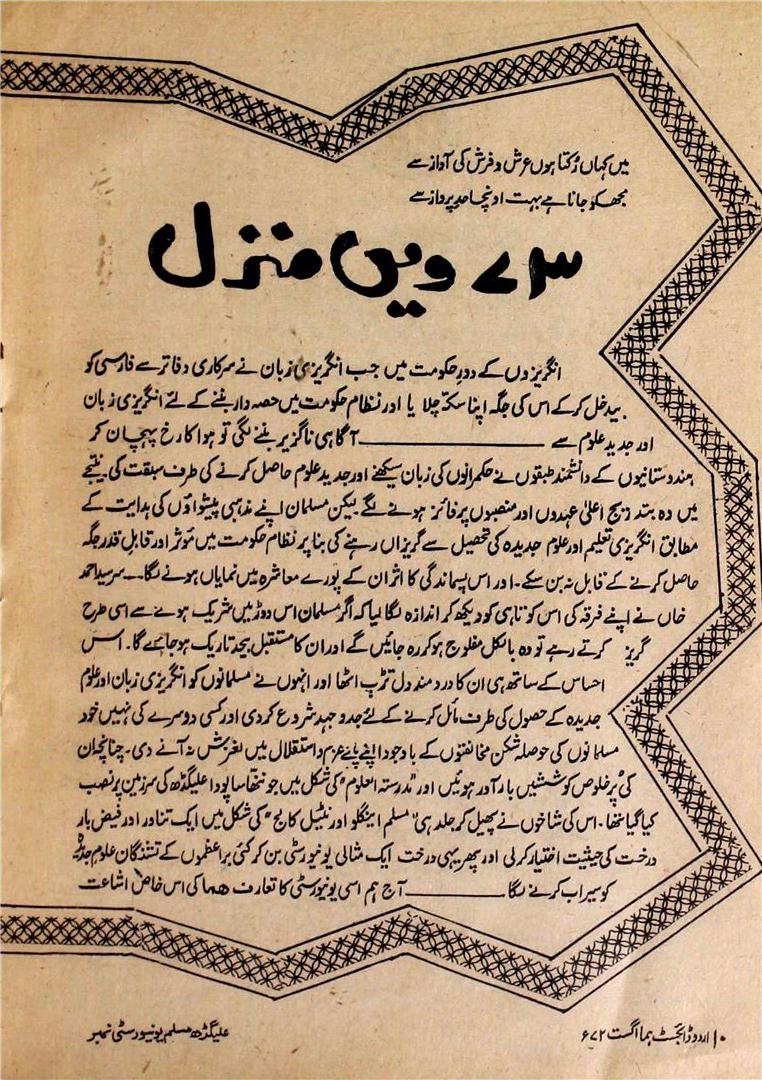 میں کہاں رُکتا ہوں عرش و فرش کی آواز سے
مجھکو جانا ہے بہت اونچا حدِ پرواز سے
۷۳ ویں منزل
انگریزوں کے دورِ حکومت میں جب انگریزی زبان نے سرکاری دفاتر سے فارسی کو
بیدخل کر کے اس کی جگہ اپنا سکّہ چلایا اور نظام حکومت میں حصہ دار بننے کے لئے انگریزی زبان
اور جدید علوم سے ــــــــــــ آگاہی ناگزیر بننے لگی تو ہوا کا رخ پہچان کر
ہندوستانیوں کے دانشمند طبقوں نے حکمرانوں کی زبان سیکھنے اور جدید علوم حاصل کرنے کی طرف سبقت کی۔ نتیجے
میں وہ بتدریج اعلیٰ عہدوں اور منصبوں پر فائز ہونے لگے لیکن مسلمان اپنے مذہبی پیشواؤں کی ہدایت کے
مطابق انگریزی تعلیم اور علوم جدیدہ کی تحصیل سے گریزاں رہنے کی بنا پر نظام حکومت میں مؤثر اور قابل قدر جگہ
حاصل کرنے کے قابل نہ بن سکے۔ اور اس پسماندگی کا اثر ان کے پورے معاشرہ میں نمایاں ہونے لگا۔۔ سرسید احمد
خاں نے اپنے فرقہ کی اس کوتاہی کو دیکھ کر اندازہ لگا لیا کہ اگر مسلمان اس دوڑ میں شریک ہونے سے اسی طرح
گریز کرتے رہے تو وہ بالکل مفلوج ہو کر رہ جائیں گے اور ان کا مستقبل بیحد تاریک ہو جائے گا۔ اس
احساس کے ساتھ ہی ان کا دردمند دل تڑپ اٹھا اور انہوں نے مسلمانوں کو انگریزی زبان اور علوم
جدیدہ کے حصول کی طرف مائل کرنے کے لئے جدوجہد شروع کردی اور کسی دوسرے کی نہیں خود
مسلمانوں کی حوصلہ شکن مخالفتوں کے باوجود اپنے پائے عزم و استقلال میں لغزش نہ آنے دی۔ چنانچہ ان
کی پُر خلوص کوششیں بار آور ہوئیں اور "مدرستہ العلوم" کی شکل میں جو ننھا سا پودا علیگڈھ کی سرزمین پر نصب
کیا گیا تھا۔ اس کی شاخوں نے پھیل کر جلد ہی "مسلم اینگلو اورنٹیل کالج" کی شکل میں ایک تناور اور فیض بار
درخت کی حیثیت اختیار کرلی اور پھر یہی درخت ایک مثالی یونیورسٹی بن کر کئی براعظموں کے تشنگان علوم جدیدہ
کو سیراب کرنے لگا ــــــــــــ آج ہم اسی یونیورسٹی کا تعارف ھما کی اس خاص اشاعت
۱۰ اردو ڈائجسٹ ہما اگست ۶۷۲
علیگڈھ مسلم یونیورسٹی نمبر